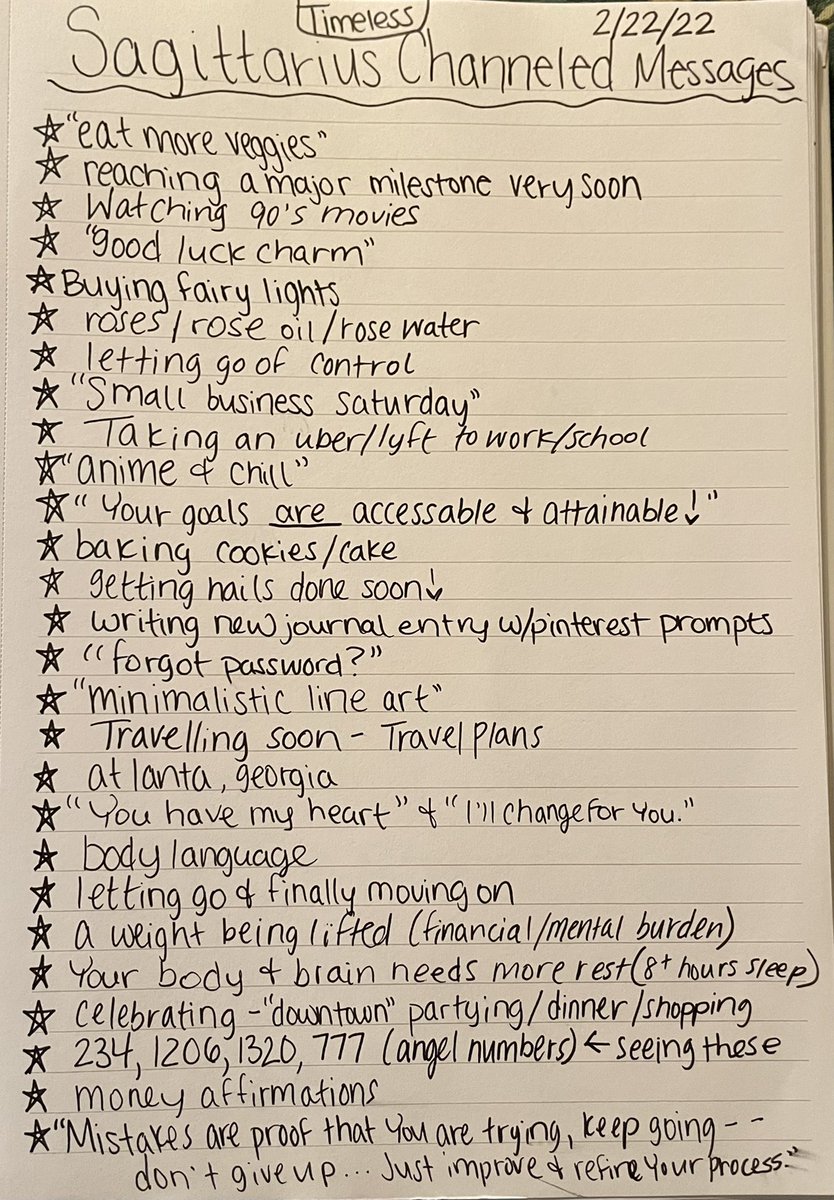 Timeless
2/22/22
Sagittarius Channeled Messages
☆ "eat more veggies"
☆ reaching a major milestone very soon
☆ Watching 90's movies
☆ "good luck charm"
☆ Buying fairy lights
☆ roses/rose oil/rose water
☆ letting go of control
☆ "Small business saturday"
☆ Taking an uber/lyft to work/school
☆ "anime & chill"
☆ "Your goals are accessable & attainable!"
☆ baking cookies/cake
☆ getting nails done soon!
☆ writing new journal entry w/pinterest prompts
☆ "forgot password?"
☆ "minimalistic line art"
☆ Travelling soon - Travel plans
☆ atlanta, georgia
☆ "You have my heart" & "I'll change for you."
☆ body language
☆ letting go & finally moving on
☆ a weight being lifted (financial/mental burden)
☆ Your body & brain needs more rest (8+ hours sleep)
☆ Celebrating - "downtown" partying/dinner/shopping
☆ 234, 1206, 1320, 777 (angel numbers) ← seeing these
☆ money affirmations
☆ "Mistakes are proof that you are trying, keep going - -
don't give up... Just improve & refine your process."